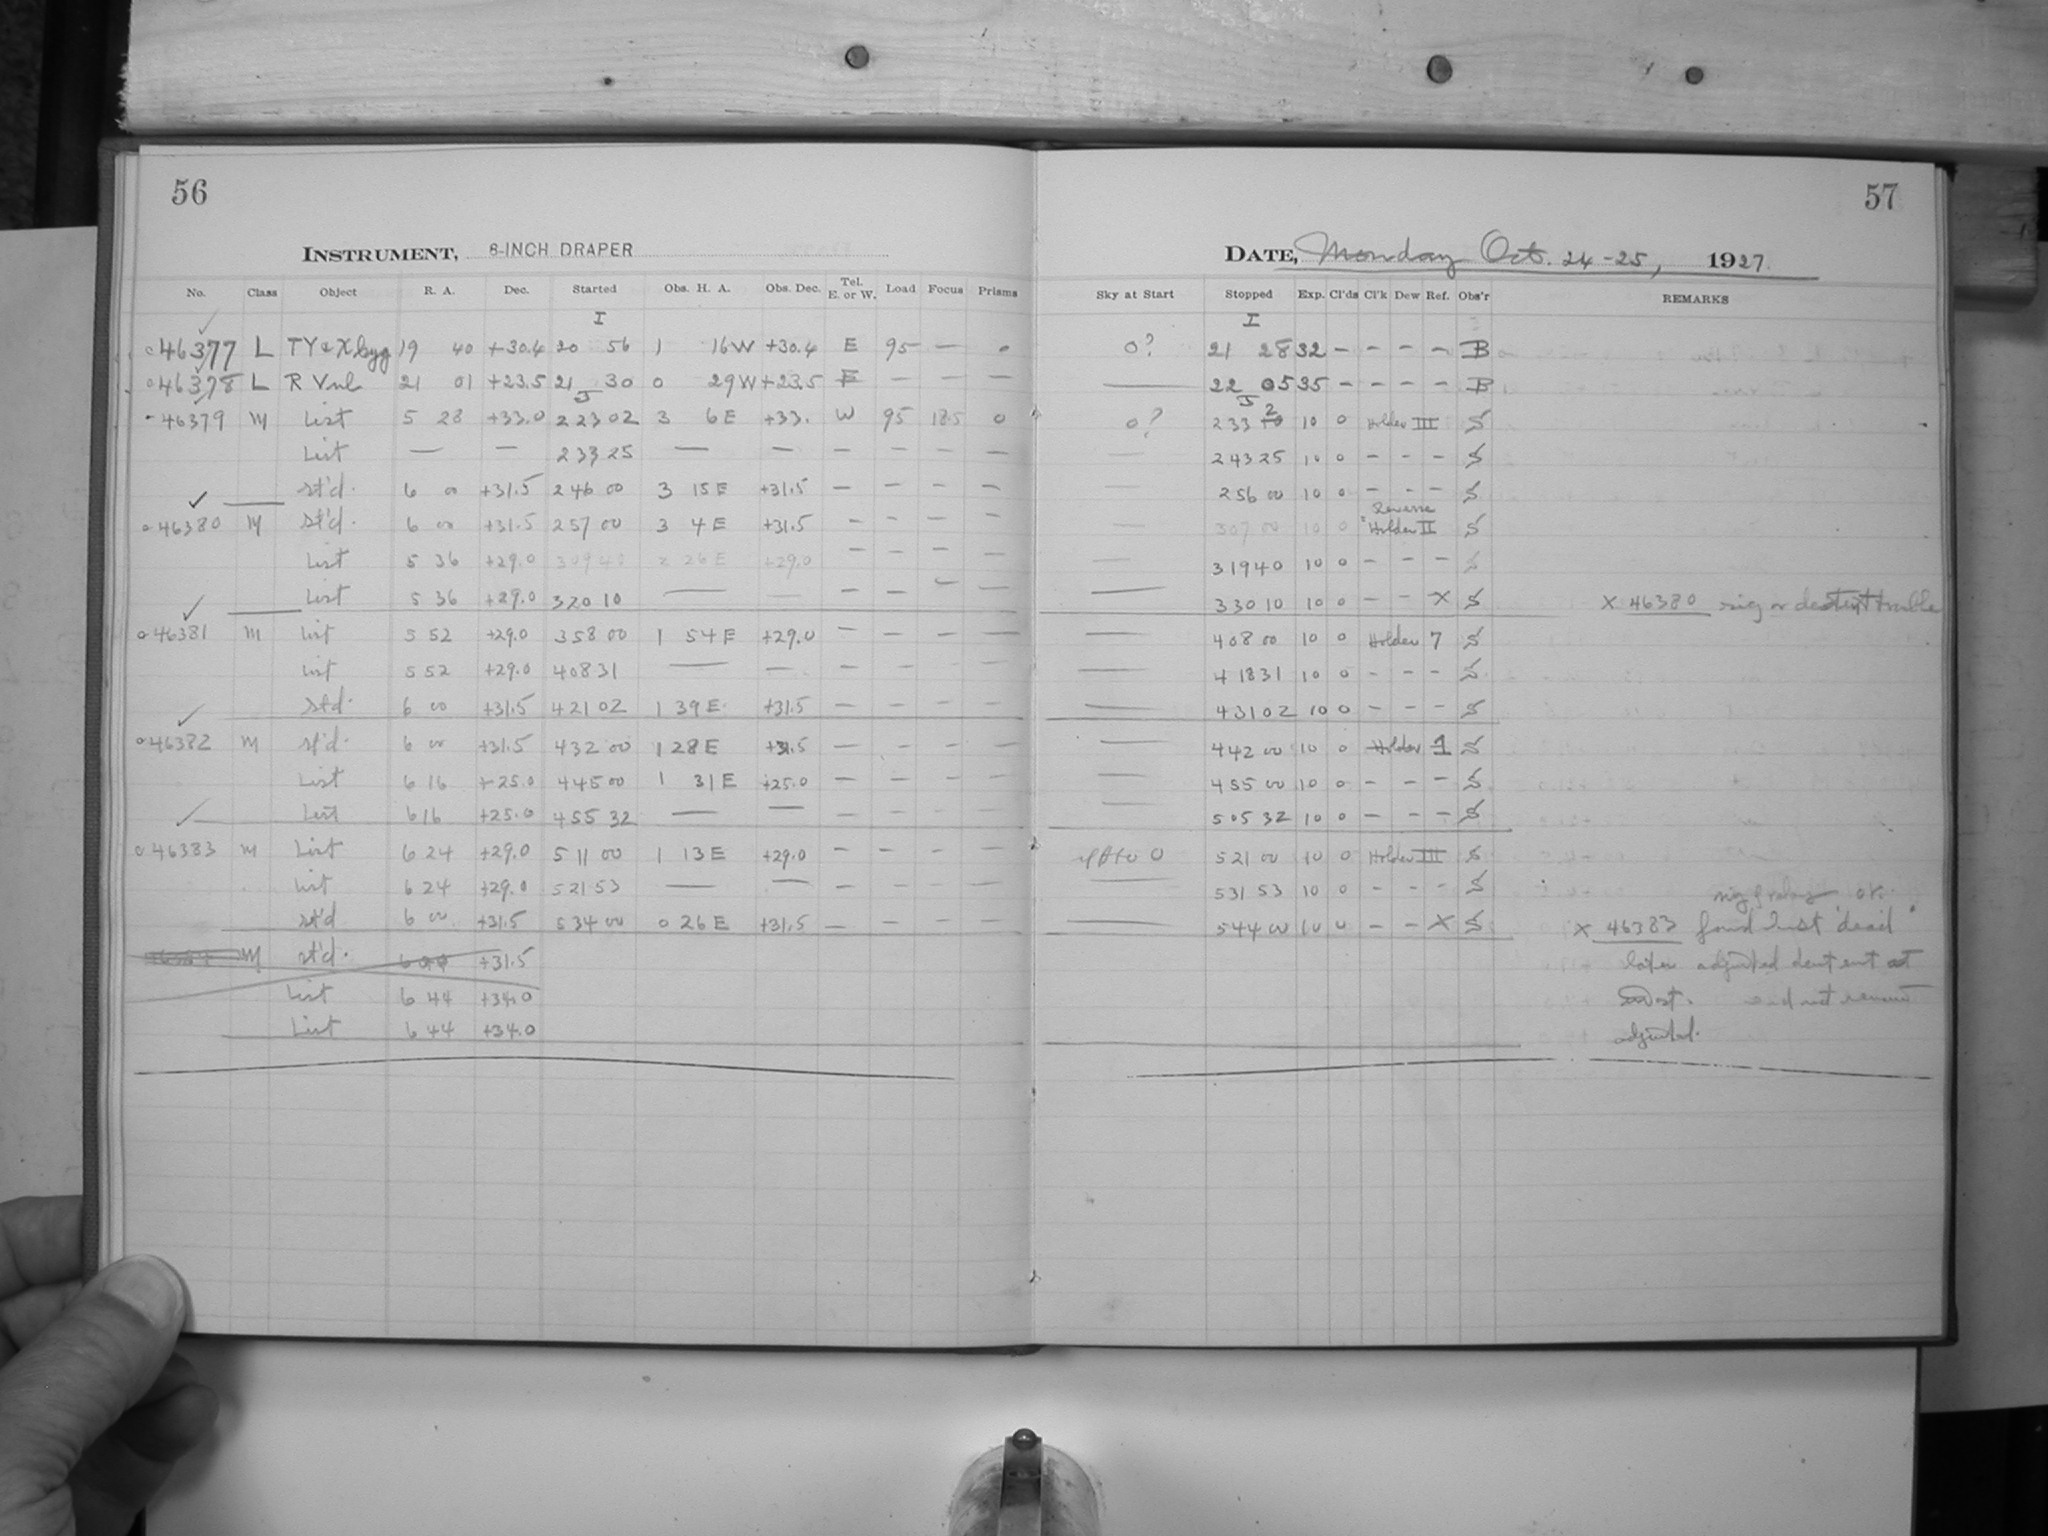 56
57
INSTRUMENT, 8-INCH DRAPER
DATE, Monday Oct. 24-25, 1927.
No. Class Object R. A. Dec. Started Obs. H. A. Obs. Dec. Tel. E. or W. Load Focus Prisms Sky at Start Stopped Exp. Cl'ds Cl'k Dew Ref. Obs'r REMARKS
I I
46377 L TY & X Cyg 19 40 +30.4 20 56 1 16W +30.4 E 95 — 0 0? 21 28 32 – – – – B
46378 L R Vul 21 01 +23.5 21 30 0 29W +23.5 E — — — — 22 05 35 – – – – B
J J
46379 M List 5 28 +33.0 2 23 02 3 6E +33. W 95 18.5 0 0? 2 33 2 10 0 Holder III S
List — — 2 33 25 — — — — — — — 2 43 25 10 0 – – – S
St'd. 6 00 +31.5 2 46 00 3 15E +31.5 — — — — — 2 56 00 10 0 – – – S
Reverse
46380 M St'd. 6 00 +31.5 2 57 00 3 4E +31.5 — — — — — 3 07 00 10 0 Holder II S
List 5 36 +29.0 3 09 40 2 26E +29.0 — — — — — 3 19 40 10 0 – – – S
List 5 36 +29.0 3 20 10 — — — — — — — 3 30 10 10 0 – – X S X 46380 sig or detent trouble
46381 M List 5 52 +29.0 3 58 00 1 54E +29.0 — — — — — 4 08 00 10 0 Holder 7 S
List 5 52 +29.0 4 08 31 — — — — — — — 4 18 31 10 0 – – – S
Std. 6 00 +31.5 4 21 02 1 39E. +31.5 — — — — — 4 31 02 10 0 – – – S
46382 M St'd. 6 00 +31.5 4 32 00 1 28E +31.5 — — — — — 4 42 00 10 0 Holder 1 S
List 6 16 +25.0 4 45 00 1 31E +25.0 — — — — — 4 55 00 10 0 – – – S
List 6 16 +25.0 4 55 32 — — — — — — — 5 05 32 10 0 – – – S
46383 M List 6 24 +29.0 5 11 00 1 13E +29.0 — — — — 0 5 21 00 10 0 Holder III S
List 6 24 +29.0 5 21 53 — — — — — — — 5 31 53 10 0 – – – S sig relay ok.
St'd 6 00 +31.5 5 34 00 0 26E +31.5 — — — — — 5 44 00 10 0 – – X S X 46383 found "dead"
M St'd. 6 00 +31.5 later adjusted detent at
List 6 44 +34.0
List 6 44 +34.0 adjusted.